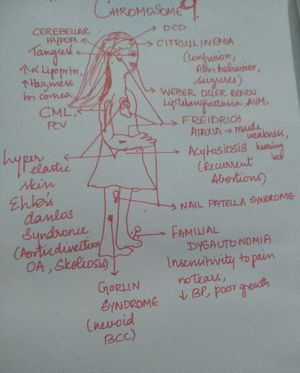 CHROMOSOME 9.
CEREBELLAR
HYPOPL
Tangier's
↑ α Lipoprtn,
↑ Haziness
in cornea
CML,
PCV
hyper
elastic
skin,
Ehlers
danlos
Syndrome
(Aortic disection
OA, Skoliosis)
OCD
CITRULLINEMIA
(confusion,
Abn behavior,
seizures)
WEBER OSLER RENDU
Lip telangiectasia, AVM.
FREIDRICH
ATAXIA → muscle
weakness,
hearing
loss
(Recurrent
Abortions)
NAIL PATELLA SYNDROME
FAMILIAL
DYSAUTONOMIA.
Insensitivity to pain
no tears,
↓ BP, poor growth
GORLIN
SYNDROME
(nevoid
BCC)